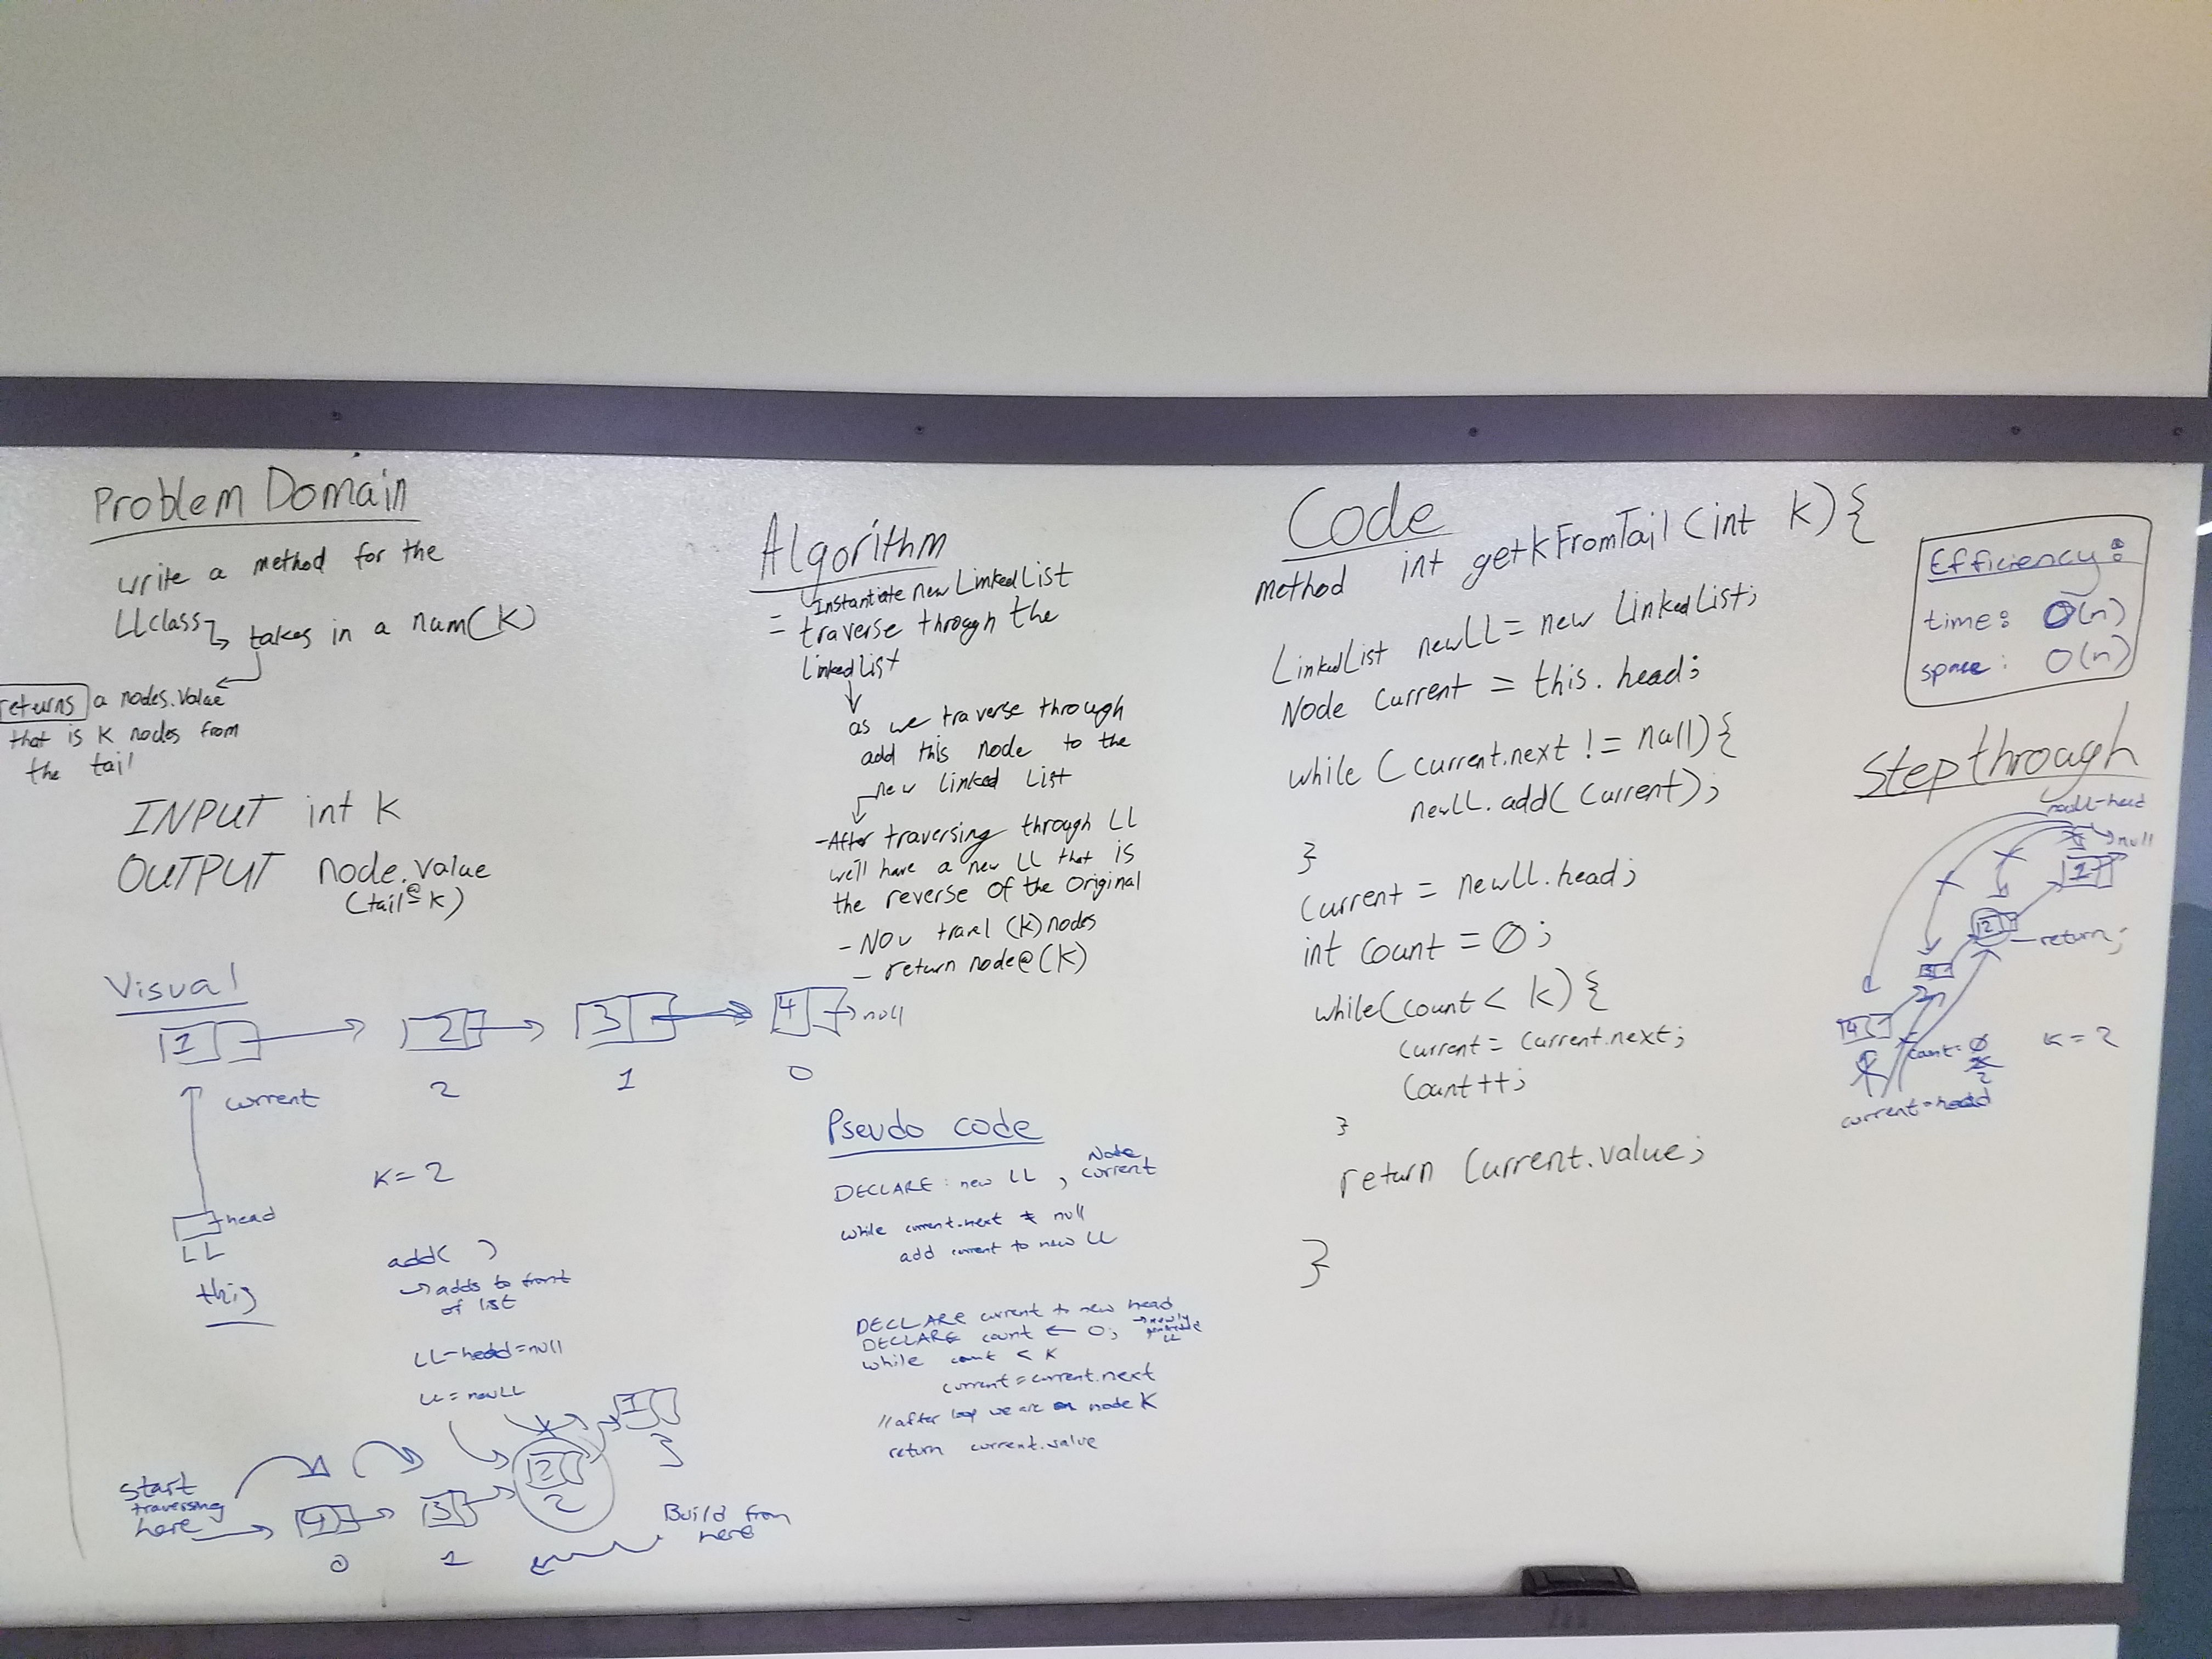 Problem Domain
write a method for the
LLclass
takes in a num(k)
returns a nodes.value
that is k nodes from
the tail
INPUT int k
OUTPUT node.value
(tail@k)
Visual
1 2 3 4 null
current 2 1 0
k=2
head
LL
this
add( )
adds to front
of list
LL-head=null
LL=newLL
1
3
2
2
Start
traversing
here
4 3
0 1
Build from
here
Algorithm
- Instantiate new LinkedList
- traverse through the
linked list
as we traverse through
add this node to the
new linked list
-After traversing through LL
we'll have a new LL that is
the reverse of the original
- Now travel (k) nodes
- return node@(k)
Pseudo code
DECLARE: new LL, Node current
while current.next ≠ null
add current to new LL
DECLARE current to new head
DECLARE count ← 0; → newly LL
while count < k
current=current.next
//after loop we are on node K
return current.value
Code
method int getkFromTail(int k){
LinkedList newLL = new LinkedList;
Node current = this.head;
while (current.next != null){
newLL.add(current);
}
current = newLL.head;
int count = 0;
while(count < k){
current = current.next;
count++;
}
return current.value;
}
Efficiency:
time: O(n)
space: O(n)
Stepthrough
newLL-head
null
1
2
return;
3
4
count=0
2
k=2
current=head